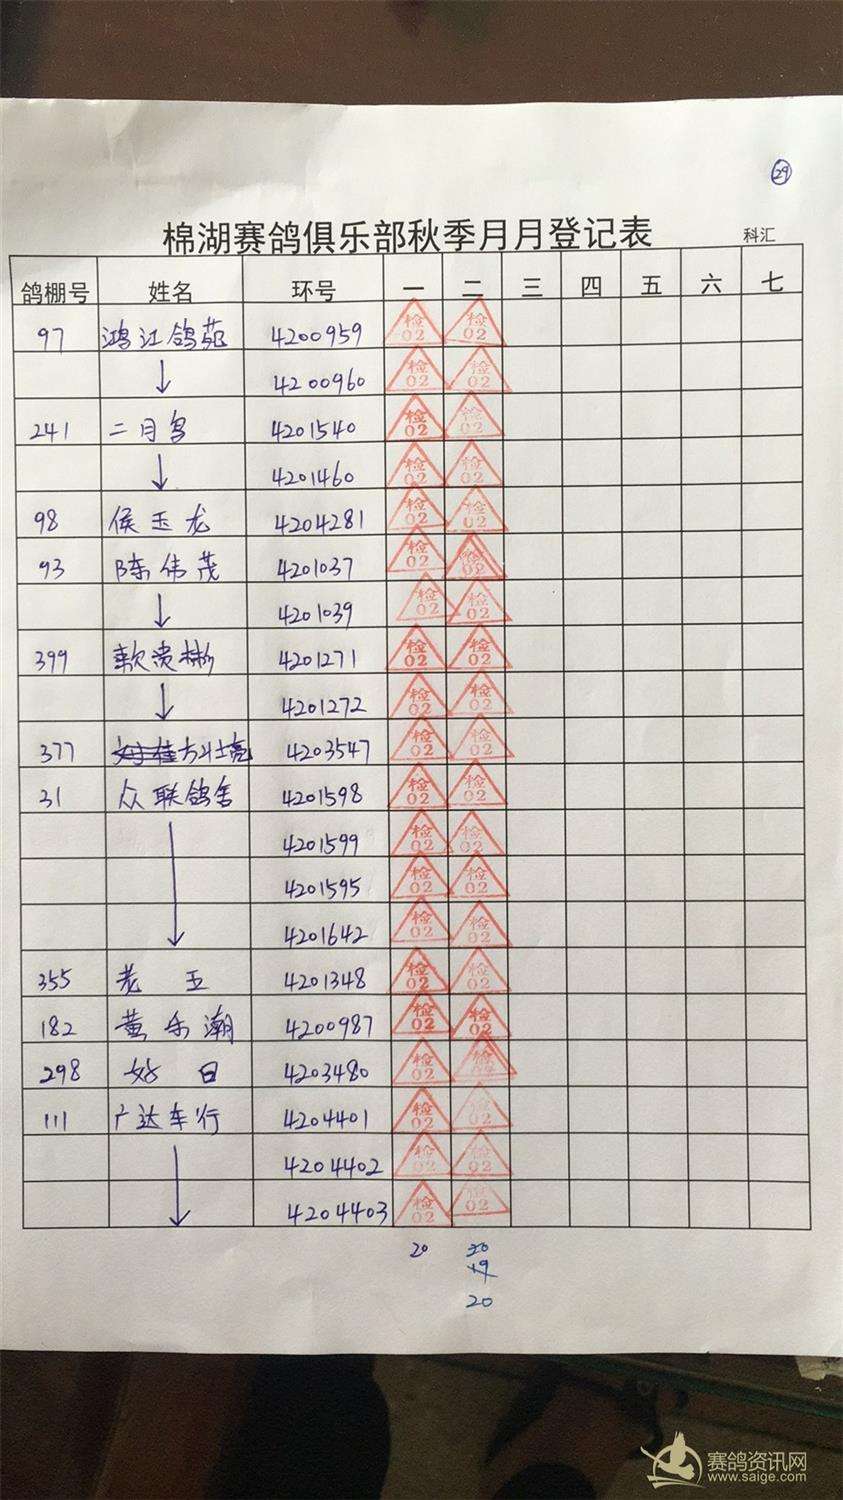 29
棉湖赛鸽俱乐部秋季月月登记表 科汇
鸽棚号 姓名 环号 一 二 三 四 五 六 七
97 鸿江鸽苑 4200959 检02 检02
↓ 4200960 检02 检02
241 二月 4201540 检02 检02
↓ 4201460 检02 检02
98 侯玉龙 4204281 检02 检02
93 陈伟茂 4201037 检02 检02
↓ 4201039 检02 检02
399 彬 4201271 检02 检02
↓ 4201272 检02 检02
377 方壮亮 4203547 检02 检02
31 众联鸽舍 4201598 检02 检02
4201599 检02 检02
4201595 检02 检02
↓ 4201642 检02 检02
355 老玉 4201348 检02 检02
182 黄乐潮 4200987 检02 检02
298 好日 4203480 检02 检02
111 广达车行 4204401 检02 检02
4204402 检02 检02
↓ 4204403 检02 检02
20 20
19
20
赛鸽资讯网
www.saige.com